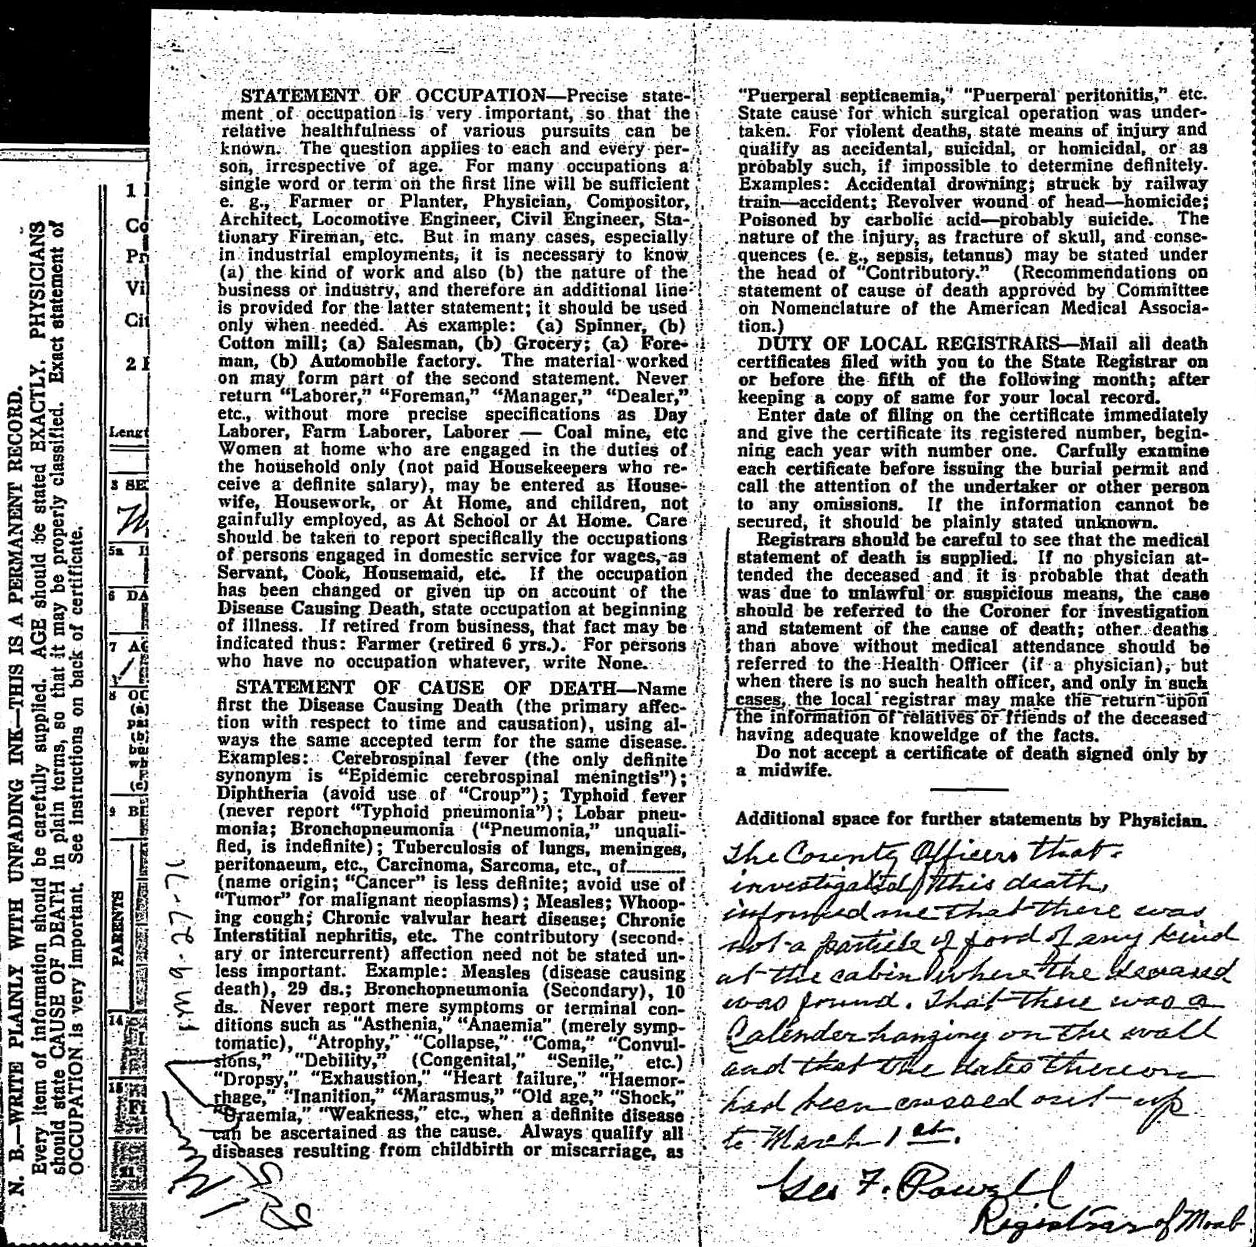 N. B.—WRITE PLAINLY WITH UNFADING INK—THIS IS A PERMANENT RECORD.
Every item of information should be carefully supplied. AGE should be stated EXACTLY. PHYSICIANS
should state CAUSE OF DEATH in plain terms, so that it may be properly classified. Exact statement of
OCCUPATION is very important. See instructions on back of certificate.
1
Co
Pr
Vi
Cit
2
Lengt
3 SE
5a
6 DA
7 AG
8 OC
(a)
pa
(b)
bu
wh
(c)
9 BI
PARENTS
14
15
STATEMENT OF OCCUPATION—Precise state-
ment of occupation is very important, so that the
relative healthfulness of various pursuits can be
known. The question applies to each and every per-
son, irrespective of age. For many occupations a
single word or term on the first line will be sufficient
e. g., Farmer or Planter, Physician, Compositor,
Architect, Locomotive Engineer, Civil Engineer, Sta-
tionary Fireman, etc. But in many cases, especially
in industrial employments, it is necessary to know
(a) the kind of work and also (b) the nature of the
business or industry, and therefore an additional line
is provided for the latter statement; it should be used
only when needed. As example: (a) Spinner, (b)
Cotton mill; (a) Salesman, (b) Grocery; (a) Fore-
man, (b) Automobile factory. The material worked
on may form part of the second statement. Never
return "Laborer," "Foreman," "Manager," "Dealer,"
etc., without more precise specifications as Day
Laborer, Farm Laborer, Laborer — Coal mine, etc
Women at home who are engaged in the duties of
the household only (not paid Housekeepers who re-
ceive a definite salary), may be entered as House-
wife, Housework, or At Home, and children, not
gainfully employed, as At School or At Home. Care
should be taken to report specifically the occupations
of persons engaged in domestic service for wages, as
Servant, Cook, Housemaid, etc. If the occupation
has been changed or given up on account of the
Disease Causing Death, state occupation at beginning
of illness. If retired from business, that fact may be
indicated thus: Farmer (retired 6 yrs.). For persons
who have no occupation whatever, write None.
STATEMENT OF CAUSE OF DEATH—Name
first the Disease Causing Death (the primary affec-
tion with respect to time and causation), using al-
ways the same accepted term for the same disease.
Examples: Cerebrospinal fever (the only definite
synonym is "Epidemic cerebrospinal meningtis");
Diphtheria (avoid use of "Croup"); Typhoid fever
(never report "Typhoid pneumonia"); Lobar pneu-
monia; Bronchopneumonia ("Pneumonia," unquali-
fied, is indefinite); Tuberculosis of lungs, meninges,
peritonaeum, etc., Carcinoma, Sarcoma, etc., of______
(name origin; "Cancer" is less definite; avoid use of
"Tumor" for malignant neoplasms); Measles; Whoop-
ing cough; Chronic valvular heart disease; Chronic
Interstitial nephritis, etc. The contributory (second-
ary or intercurrent) affection need not be stated un-
less important. Example: Measles (disease causing
death), 29 ds.; Bronchopneumonia (Secondary), 10
ds. Never report mere symptoms or terminal con-
ditions such as "Asthenia," "Anaemia" (merely symp-
tomatic), "Atrophy," "Collapse," "Coma," "Convul-
sions," "Debility," (Congenital," "Senile," etc.)
"Dropsy," "Exhaustion," "Heart failure," "Haemor-
rhage," "Inanition," "Marasmus," "Old age," "Shock,"
"Uraemia," "Weakness," etc., when a definite disease
can be ascertained as the cause. Always qualify all
diseases resulting from childbirth or miscarriage, as
"Puerperal septicaemia," "Puerperal peritonitis," etc.
State cause for which surgical operation was under-
taken. For violent deaths, state means of injury and
qualify as accidental, suicidal, or homicidal, or as
probably such, if impossible to determine definitely.
Examples: Accidental drowning; struck by railway
train—accident; Revolver wound of head—homicide;
Poisoned by carbolic acid—probably suicide. The
nature of the injury, as fracture of skull, and conse-
quences (e. g., sepsis, tetanus) may be stated under
the head of "Contributory." (Recommendations on
statement of cause of death approved by Committee
on Nomenclature of the American Medical Associa-
tion.)
DUTY OF LOCAL REGISTRARS—Mail all death
certificates filed with you to the State Registrar on
or before the fifth of the following month; after
keeping a copy of same for your local record.
Enter date of filing on the certificate immediately
and give the certificate its registered number, begin-
ning each year with number one. Carfully examine
each certificate before issuing the burial permit and
call the attention of the undertaker or other person
to any omissions. If the information cannot be
secured, it should be plainly stated unknown.
Registrars should be careful to see that the medical
statement of death is supplied. If no physician at-
tended the deceased and it is probable that death
was due to unlawful or suspicious means, the case
should be referred to the Coroner for investigation
and statement of the cause of death; other deaths
than above without medical attendance should be
referred to the Health Officer (if a physician), but
when there is no such health officer, and only in such
cases, the local registrar may make the return upon
the information of relatives or friends of the deceased
having adequate knoweldge of the facts.
Do not accept a certificate of death signed only by
a midwife.
Additional space for further statements by Physician.
The County Officers that
investigated this death,
informed me that there was
not a particle of food of any kind
at the cabin where the deceased
was found. That there was a
Calender hanging on the wall
and that the dates thereon
had been crossed out up
to March 1st.
Geo F. Powell
Registrar of Moab
9-27-76